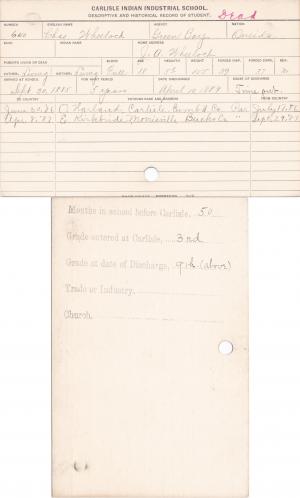 CARLISLE INDIAN INDUSTRIAL SCHOOL.
DESCRIPTIVE AND HISTORICAL RECORD OF STUDENT. Dead
NUMBER ENGLISH NAME AGENCY NATION
Chas Wheelock Green Bay Oneida
INDIAN NAME HOME ADDRESS
J. A. Wheelock
PARENTS LIVING OR DEAD BLOOD AGE HEIGHT WEIGHT FORCED INSP. FORCED EXPR. SEX
FATHER, Living MOTHER, Living Full 18 M.
ARRIVED AT SCHOOL FOR WHAT PERIOD DATE DISCHARGED CAUSE OF DISCHARGE
Sept. 30, 1885 5 years April 10, 1889 Time out
TO COUNTRY PATRONS NAME AND ADDRESS FROM COUNTRY
June 30, 86 Carlisle
Apr. 8, 87 E. Kirkbride Morrisville Bucks Co " Sept. 29, 87
Months in school before Carlisle, 50
Grade entered at Carlisle, 3rd
Grade at date of Discharge, 9th (above)
Trade or Industry,
Church,